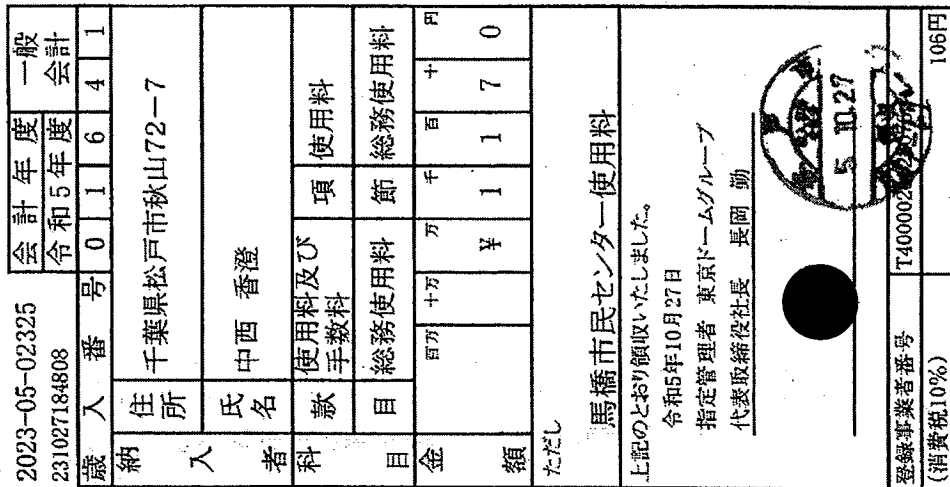 2023-05-02325
231027184808
会計年度
令和5年度
一般会計
歳入番号 0 1 6 4 1
納入者
住所 千葉県松戸市秋山72-7
氏名 中西 香澄
科目
款 使用料及び手数料 項 使用料
目 総務使用料 節 総務使用料
金額
百万 十万 万 千 百 十 円
¥ 1 1 7 0
ただし
馬橋市民センター使用料
上記のとおり領収いたしました。
令和5年10月27日
指定管理者 東京ドームグループ
代表取締役社長 長岡 勤
5.10.27
登録事業者番号 T400002
(消費税10%) 106円